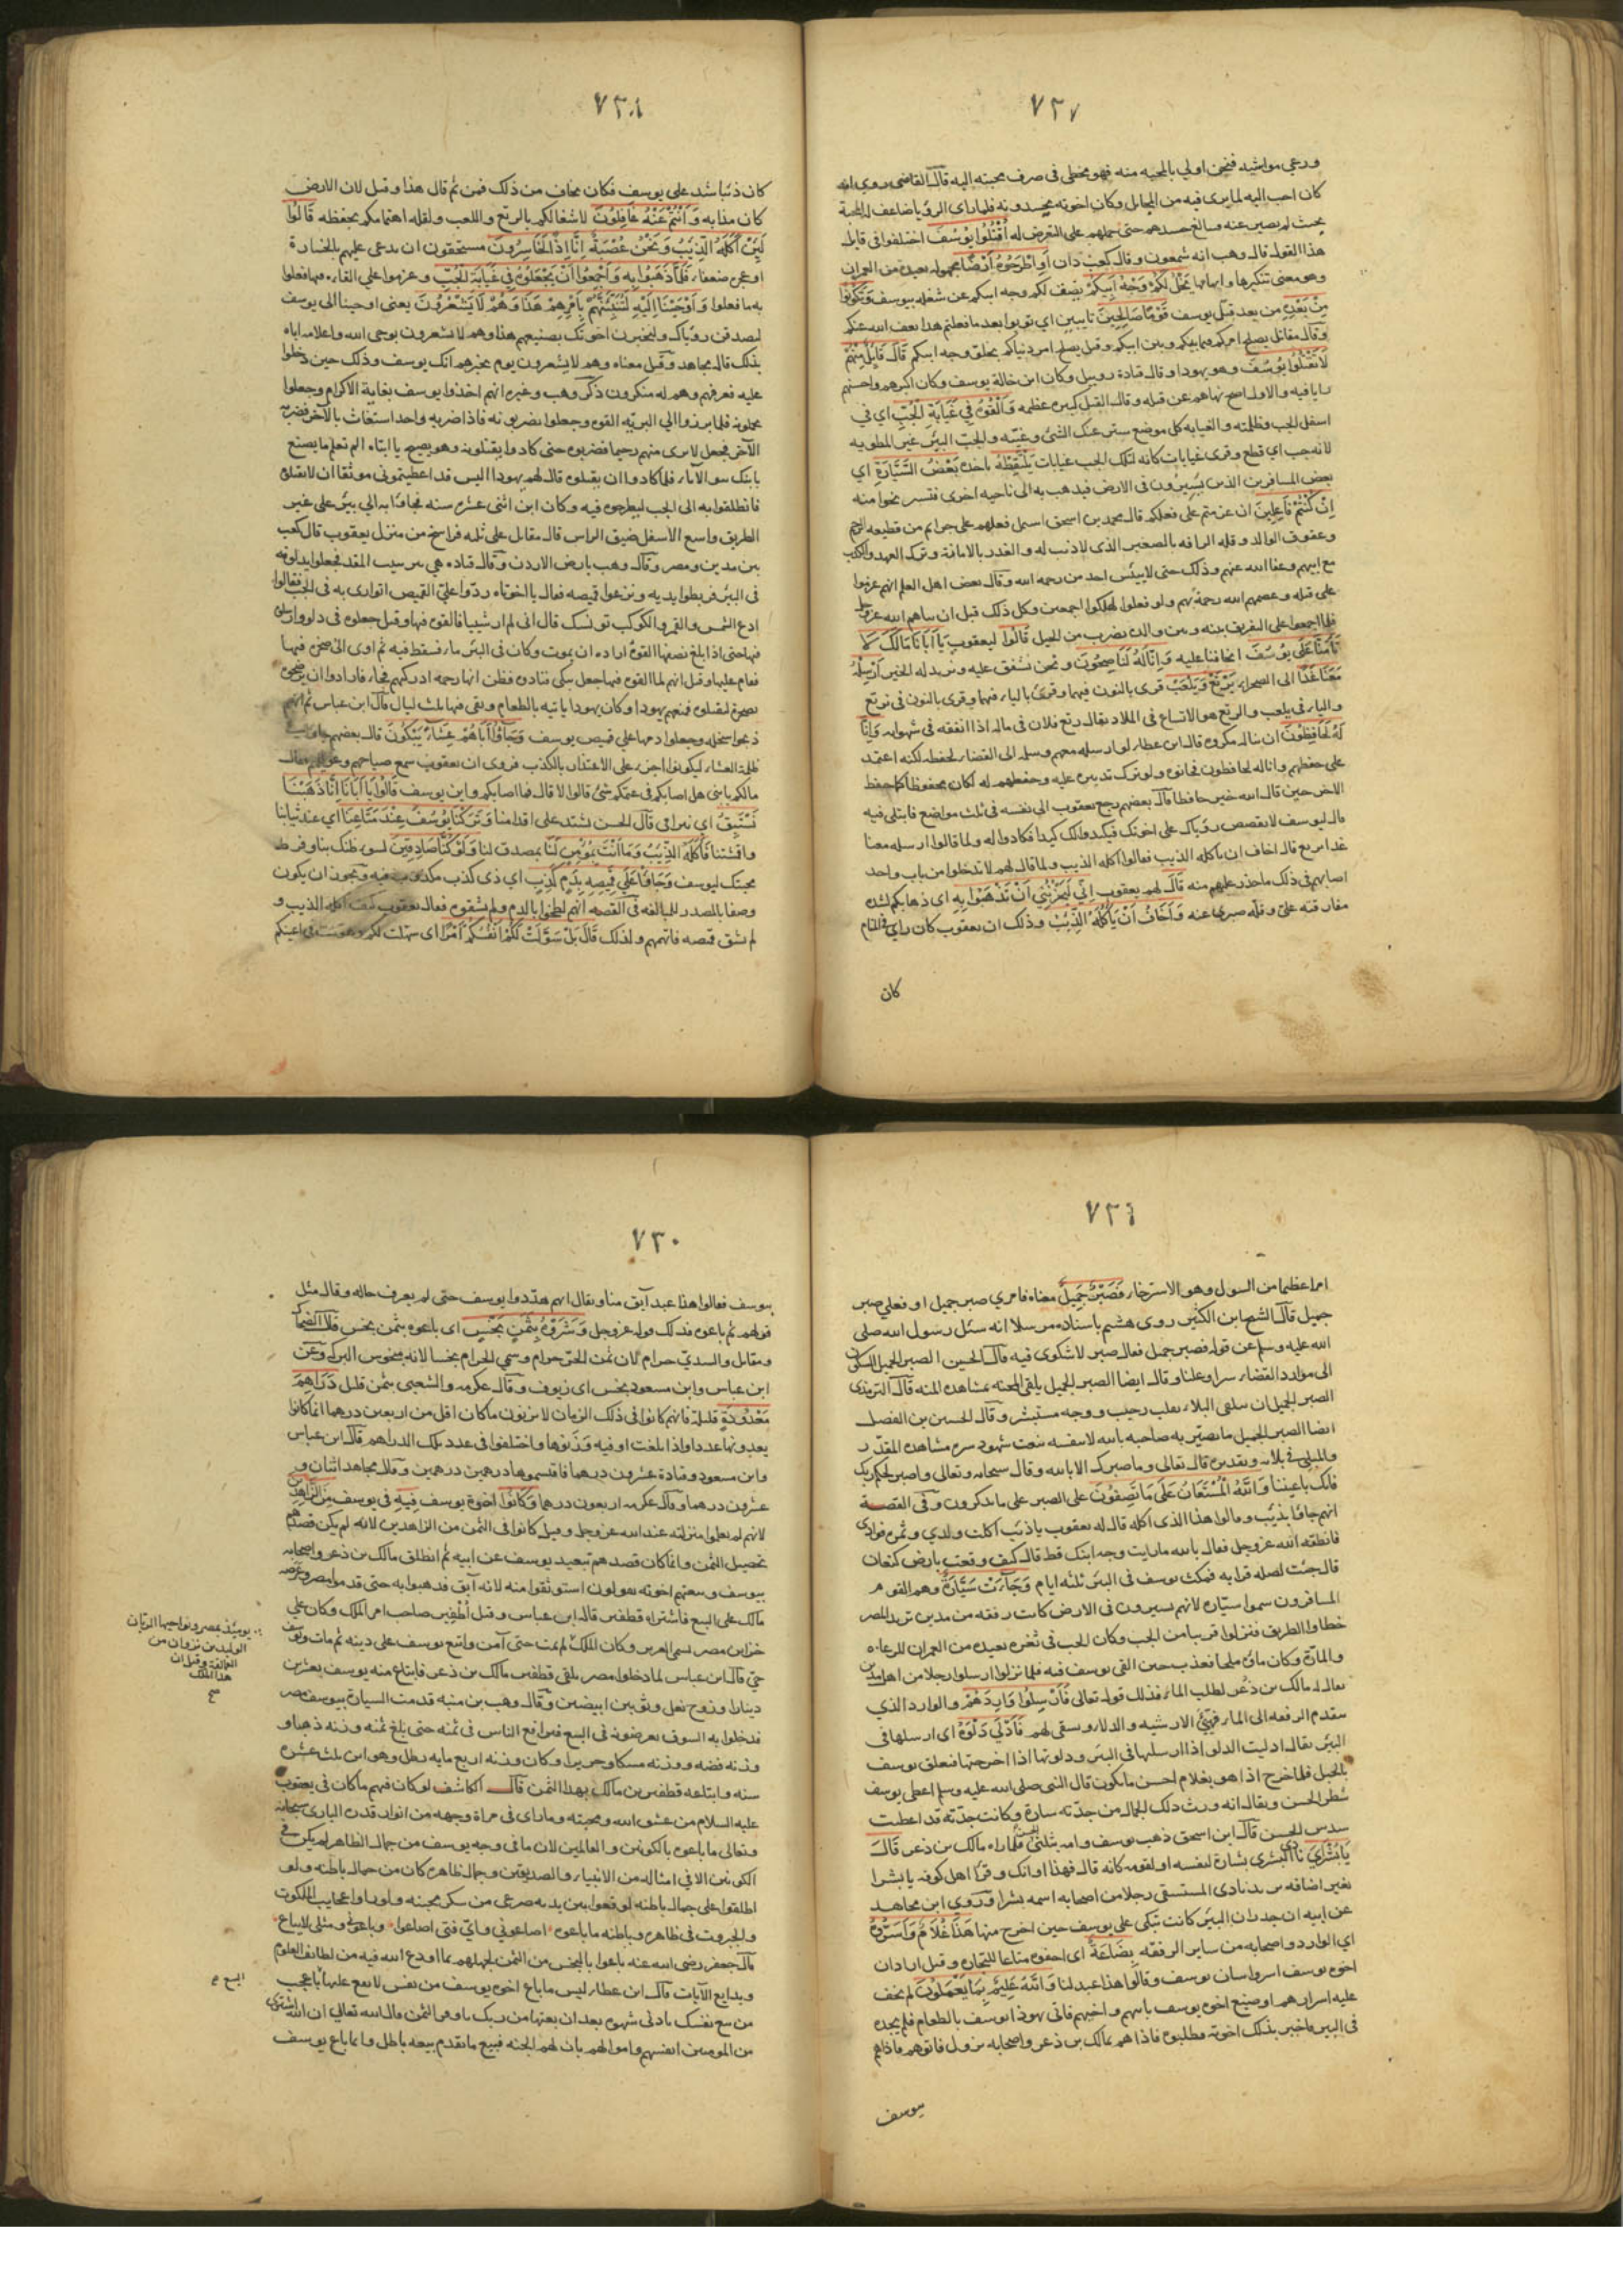 ٧٢٧
ورعي مواشيه فنحن اولي بالمحبه منه فهو مخطى فى صرف محبته اليه قال القاضى روى انه
كان احب اليه لما يرى فيه من المخايل وكان اخوته يحسدونه فلما راى الرؤيا ضاعف له المحبة
بحيث لم يصبر عنه فبالغ حسدهم حتى حملهم على التعرض له اُقْتُلُوا يُوْسُفَ اختلفوا فى قايل
هذا القول قال وهب انه شمعون وقال كعب دان أَوِاطْرَحُوْهُ أَرْضًا مجهوله بعيدة من العمران
وهو معنى تنكيرها وابهامها يَخْلُ لَكُمْ وَجْهُ اَبِيكُمْ يصف لكم وجه ابيكم عن شغله بيوسف وَتَكُوْنُوْا
مِنْ بَعْدِهِ من بعد قتل يوسف قَوْمًا صَالِحِيْنَ تايبين اي توبوا بعد ما فعلتم هذا يعف الله عنكم
وقال مقاتل يصلح امركم فيما بينكم وبين ابيكم وقيل يصلح امر دنياكم بخلو وجه ابيكم قَالَ قَائِلٌ مِنْهُمْ
لَا تَقْتُلُوْا يُوْسُفَ وهو يهودا وقال قتادة روبيل وكان ابن خالة يوسف وكان اكبرهم واحسنهم
رايا فيه والاول اصح نهاهم عن قتله وقال القتل كبيره عظيمه وَأَلْقُوْهُ فِي غَيَابَةِ الْجُبِّ اي في
اسفل الجب وظلمته والغيابه كل موضع ستر عنك الشئ وغيبه والجب البير غير المطويه
لانه جب اي قطع وقرى غيابات كانه لتلك الجب غيابات يَلْتَقِطْهُ ياخذه بَعْضُ السَّيَّارَةِ اى
بعض المسافرين الذين يسيرون فى الارض فيذهب به الى ناحيه اخرى فتستريحوا منه
اِنْ كُنْتُمْ فَاعِلِيْنَ ان عزمتم على فعلكم قال محمد بن اسحق اشتمل فعلهم على جرايم من قطيعه الرحم
وعقوق الوالد وقله الرافه بالصغير الذى لا ذنب له والغدر بالامانة وترك العهد والكذب
مع ابيهم وعفا الله عنهم وذلك حتى لا ييئس احد من رحمة الله وقال بعض اهل العلم انهم عزموا
على قتله وعصمهم الله رحمة بهم ولو فعلوا لهلكوا اجمعين وكل ذلك قبل ان نباهم الله عز وجل
فلما اجمعوا على التفريق بينه وبين والده بضرب من الحيل قَالُوا ليعقوب يَا اَبَانَا مَالَكَ لَا
تَأْمَنَّا عَلٰى يُوْسُفَ اتخافنا عليه وَاِنَّا لَهُ لَنَاصِحُوْنَ ونحن نشفق عليه ونريد له الخير اَرْسِلْهُ
مَعَنَا غَدًا الى الصحراء يَرْتَعْ وَيَلْعَبْ قرى بالنون فيهما وقرئ بالياء فيهما وقرى بالنون فى نرتع
والياء فى يلعب والرتع هو الاتساع فى الملاذ يقال رتع فلان فى ماله اذا انفقه فى شهواته وَاِنَّا
لَهُ لَحَافِظُوْنَ ان يناله مكروه قال ابن عطاء لو ارسله معهم وسلمه الى القضاء لحفظه لكنه اعتمد
على حفظهم وانا له لحافظون فخانوه ولو ترك تدبيره عليه وحفظهم له لكان محفوظا كما حفظ
الاخر حين قال الله خير حافظا قال بعضهم رجع يعقوب الى نفسه فى ثلث مواضع فابتلى فيه
قال ليوسف لا تقصص رؤياك على اخوتك فيكيدوا لك كيدا فكادوا له ولما قالوا ارسله معنا
غدا يرتع قال اخاف ان ياكله الذيب فقالوا اكله الذيب ولما قال لهم لا تدخلوا من باب واحد
اصابهم فى ذلك ما حذر عليهم منه قَالَ لهم يعقوب اِنِّي لَيَحْزُنُنِي اَنْ تَذْهَبُوْا بِهِ اى ذهابكم لشده
مفارقته عليّ وقلّه صبري عنه وَأَخَافُ أَنْ يَأْكُلَهُ الذِّيْبُ وذلك ان يعقوب كان راي فى المنام
كان
٧٢٨
كان ذئبا شد على يوسف فكان يخاف من ذلك فمن ثم قال هذا وقيل لان الارض
كان مذابه وَاَنْتُمْ عَنْهُ غَافِلُوْنَ لاشغالكم بالرتع واللعب ولقله اهتمامكم بحفظه قَالُوْا
لَئِنْ اَكَلَهُ الذِّيْبُ وَنَحْنُ عُصْبَةٌ اِنَّا اِذًا لَخَاسِرُوْنَ مستحقون ان يدعى عليهم بالخسارة
او عجزه ضعفاء فَلَمَّا ذَهَبُوْا بِهِ وَاَجْمَعُوْا أَنْ يَجْعَلُوْهُ فِي غَيَابَةِ الْجُبِّ وعزموا علي القاءه فيها فعلوا
به ما فعلوا وَاَوْحَيْنَا اِلَيْهِ لَتُنَبِّئَنَّهُمْ بِاَمْرِهِمْ هٰذَا وَهُمْ لَا يَشْعُرُوْنَ يعنى اوحينا الى يوسف
ليصدقن رؤياك ولتخبرن اخوتك بصنيعهم هذا وهم لا يشعرون بوحى الله واعلامه اياه
بذلك قاله مجاهد وقيل معناه وهم لا يشعرون يوم يخبرهم انك يوسف وذلك حين دخلوا
عليه فعرفهم وهم له منكرون ذكر وهب وغيره انهم اخذوا يوسف بغاية الاكرام وجعلوا
يحملونه فلما برزوا الي البريه القوه وجعلوا يضربونه فاذا ضربه واحد استغاث بالآخر فضربه
الآخر فجعل لا يرى منهم رحيما فضربوه حتى كادوا يقتلونه وهو يصيح يا ابتاه الم تعلم ما يصنع
بابنك بنوا الاماء فلما كادوا ان يقتلوه قال لهم يهودا اليس قد اعطيتمونى موثقا ان لا تقتلوه
فانطلقوا به الى الجب ليطرحوه فيه وكان ابن اثنى عشره سنه فجاؤا به الي بير على غير
الطريق واسع الاسفل ضيق الراس قال مقاتل على ثلثه فراسخ من منزل يعقوب قال كعب
بين مدين ومصر وقال وهب بارض الاردن وقال قتاده هى بير بيت المقدس فجعلوا يدلونه
فى البئر فربطوا يديه ونزعوا قميصه فقال يا اخوتاه ردوا عليّ القميص اتوارى به فى الجب فقالوا
ادع الشمس والقمر والكوكب تونسك قال انى لم ار شيئا فالقوه فيها وقيل جعلوه فى دلو وارسلوه
فيها حتى اذا بلغ نصفها القوه اراده ان يموت وكان فى البئر ماء فسقط فيه ثم اوى الى صخره فيها
فقام عليها وقيل انهم لما القوه فيها جعل يبكى فنادوه فظن انها رحمه ادركتهم فجاء فارادوا ان يرضخوه
بصخرة ليقتلوه فمنعهم يهودا وكان يهودا ياتيه بالطعام وبقى فيها ثلث ليال قال ابن عباس ثم انهم
ذبحوا سخله وجعلوا دمها على قميص يوسف وَجَاؤُا اَبَاهُمْ عِشَاءً يَبْكُوْنَ قال بعضهم
ظلمة العشاء ليكونوا اجرى على الاعتذار بالكذب فروى ان يعقوب سمع صياحهم
مالكم يا بنى هل اصابكم فى غنمكم شئ قالوا لا قال فما اصابكم واين يوسف قَالُوْا يَا اَبَانَا اِنَّا ذَهَبْنَا
نَسْتَبِقُ اي نترامى قال الحسن نشتد على اقدامنا وَتَرَكْنَا يُوْسُفَ عِنْدَ مَتَاعِنَا اي عند ثيابنا
واقشتنا فَاَكَلَهُ الذِّيْبُ وَمَا اَنْتَ بِمُؤْمِنٍ لَنَا بمصدق لنا وَلَوْ كُنَّا صَادِقِيْنَ لسوء ظنك بنا وفرط
محبتك ليوسف وَجَاؤُا عَلٰي قَمِيْصِهِ بِدَمٍ كَذِبٍ اي ذى كذب مكذوب فيه ويجوز ان يكون
وصفا بالمصدر للمبالغه فى القصه انهم لطخوا بالدم ولم يشقوه فقال يعقوب كيف اكله الذيب و
لم يشق قميصه فاتهمهم ولذلك قَالَ بَلْ سَوَّلَتْ لَكُمْ اَنْفُسُكُمْ اَمْرًا اى سهلت لكم وهونت فى اعينكم
٧٢٩
امرا عظيما من السول وهو الاسترخاء فَصَبْرٌ جَمِيلٌ معناه فامري صبر جميل او فعلي صبر
جميل قال الشيخ ابن الكثير روى هشيم باسناده مرسلا انه سئل رسول الله صلى
الله عليه وسلم عن قوله فصبر جميل فقال صبر لا شكوى فيه قال الحسين الصبر الجميل السكون
الى موارد القضاء سرا وعلنا وقال ايضا الصبر الجميل يلقى المحنه بمشاهده المنه قال الترمذى
الصبر الجميل ان يتلقى البلاء بقلب رحيب ووجه مستبشر وقال الحسين بن الفضل
ايضا الصبر الجميل ما يصير به صاحبه بالله لا بنفسه بنعت شهود سره مشاهده المقدر
والمبلى فى بلائه وتقديره قال تعالى وما صبرك الا بالله وقال سبحانه وتعالى واصبر لحكم ربك
فانك باعيننا وَاللّٰهُ الْمُسْتَعَانُ عَلٰى مَا تَصِفُوْنَ على الصبر على ما تذكرون وفى القصة
انهم جاؤا بذئب وقالوا هذا الذى اكله قال له يعقوب يا ذئب اكلت ولدي وثمرة فوادى
فانطقه الله عز وجل فقال بالله ما رايت وجه ابنك قط قال كيف وقعت بارض كنعان
قال جئت لصله قرابه فمكث يوسف فى البئر ثلثه ايام وَجَاءَتْ سَيَّارَةٌ وهم القوم
المسافرون سموا سياره لانهم يسيرون فى الارض كانت رفقه من مدين تريد المصر
خطاوا الطريق فنزلوا قريبا من الجب وكان الجب فى قفره بعيده من العمران للرعاه
والمارة وكان ماؤه ملحا فعذب حين القى يوسف فيه فلما نزلوا ارسلوا رجلا من اهل مدين
يقال له مالك بن ذعر لطلب الماء فذلك قوله تعالى فَأَرْسَلُوْا وَارِدَهُمْ والوارد الذي
يتقدم الرفقه الى الماء فيهيئ الارشيه والدلاء ويسقى لهم فَأَدْلٰى دَلْوَهُ اى ارسلها فى
البئر يقال ادليت الدلو اذا ارسلتها فى البئر ودلوتها اذا اخرجتها فتعلق يوسف
بالحبل فلما خرج اذا هو بغلام احسن ما يكون قال النبى صلى الله عليه وسلم اعطى يوسف
شطر الحسن ويقال انه ورث ذلك الجمال من جدته سارة وكانت جدته قد اعطيت
سدس الحسن قال ابن اسحق ذهب يوسف وامه بثلثي الحسن فلما راه مالك بن ذعر قَالَ
يَا بُشْرَايَ نادى البشرى بشارة لنفسه او لقومه كانه قال فهذا اوانك وقرا اهل كوفه يا بشرا
بغير اضافه يريد نادى المستسقى رجلا من اصحابه اسمه بشرا وروي ابن مجاهد
عن ابيه ان جدران البئر كانت تبكى على يوسف حين اخرج منها هٰذَا غُلَامٌ وَاَسَرُّوْهُ
اي الوارد واصحابه من ساير الرفقه بِضَاعَةً اى اخفوه متاعا للتجاره وقيل اراد ان
اخوه يوسف اسروا سان يوسف وقالوا هذا عبد لنا وَاللّٰهُ عَلِيْمٌ بِمَا يَعْمَلُوْنَ لم يخف
عليه اسرارهم او صنيع اخوه يوسف بابيهم واخيهم فاتى يهوذا يوسف بالطعام فلم يجده
فى البير فاخبر بذلك اخوته فطلبوه فاذا هم بمالك بن ذعر واصحابه نزول فاتوهم فاذاهم
يوسف
٧٣٠
بيوسف فقالوا هذا عبد آبق منا ويقال انهم هددوا يوسف حتى لم يعرف حاله وقال مثل
قولهم ثم باعوه فذلك قوله عز وجل وَشَرَوْهُ بِثَمَنٍ بَخْسٍ اى باعوه بثمن بخس قال الضحاك
ومقاتل والسدي حرام لان ثمن الحر حرام وسمي الحرام بخسا لانه مبخوس البركه وعن
ابن عباس وابن مسعود بخس اى زيوف وقال عكرمه والشعبى بثمن قليل دَرَاهِمَ
مَعْدُوْدَةٍ قليلة فانهم كانوا فى ذلك الزمان لا يزنون ما كان اقل من اربعين درهما انما كانوا
يعدونها عدا واذا بلغت اوقيه وزنوها واختلفوا فى عدد تلك الدراهم قال ابن عباس
وابن مسعود وقتادة عشرون درهما فاقتسموها درهمين درهمين وقال مجاهد اثنان و
عشرون درهما وقال عكرمه اربعون درهما وَكَانُوْا اخوة يوسف فِيْهِ فى يوسف مِنَ الزَّاهِدِيْنَ
لانهم لم يعلموا منزلته عند الله عز وجل وقيل كانوا فى الثمن من الزاهدين لانه لم يكن قصدهم
تحصيل الثمن وانما كان قصدهم تبعيد يوسف عن ابيه ثم انطلق مالك بن ذعر واصحابه
بيوسف وبيعتهم اخوته يقولون استوثقوا منه لانه آبق فذهبوا به حتى قدموا مصر وعرضه
مالك على البيع فاشتراه قطفير قاله ابن عباس وقيل أُطْفِير صاحب امر الملك وكان على
خزاين مصر يسمى العزيز وكان الملك لم يمت حتى آمن واتبع يوسف على دينه ثم مات ويوسف
حيّ قال ابن عباس لما دخلوا مصر تلقى قطفير مالك بن ذعر فابتاع منه يوسف بعشرين
دينارا وزوج نعل وثوبين ابيضين وقال وهب بن منبه قدمت السيارة بيوسف مصر
فدخلوا به السوق يعرضونه فى البيع فترافع الناس فى ثمنه حتى بلغ ثمنه وزنه ذهبا و
وزنه فضه ووزنه مسكا وحريرا وكان وزنه اربع مايه رطل وهو ابن ثلث عشره
سنه وابتاعه قطفير بن مالك بهذا الثمن قال الكاشف لو كان فيهم ما كان فى يعقوب
عليه السلام من عشق الله ومحبته وما راى فى مراة وجهه من انوار قدره البارى سبحانه
وتعالى ما باعوه بالكونين والعالمين لان ما فى وجه يوسف من جمال الظاهر لم يكن فى
الكونين الا فى امثاله من الانبياء والصديقين وجمال ظاهره كان من جمال باطنه ولو
اطلعوا على جمال باطنه لوقعوا بين يديه صرعى من سكر محبته ولو راوا عجايب الملكوت
والجبروت فى ظاهره وباطنه ما باعوه اضاعوني وايّ فتى اضاعوا وباعونى ومثلى لا يباع
قال جعفر رضى الله عنه باعوا بالبخس من الثمن لجهلهم بما اودع الله فيه من لطايف العلوم
وبدايع الآيات قال ابن عطاء ليس ما باع اخوة يوسف من نفس لا يقع عليها باعجب
من بيع نفسك بادنى شهوه بعد ان بعتها من ربك باوفر الثمن قال الله تعالى ان الله اشترى
من المومنين انفسهم واموالهم بان لهم الجنه فبيع ما تقدم بيعه باطل وانما باع يوسف
يوميئذ بمصر ونواحيها الريّان
الوليد بن نزوان من
العمالقة وقيل ان
هذا الملك
صح
البيع